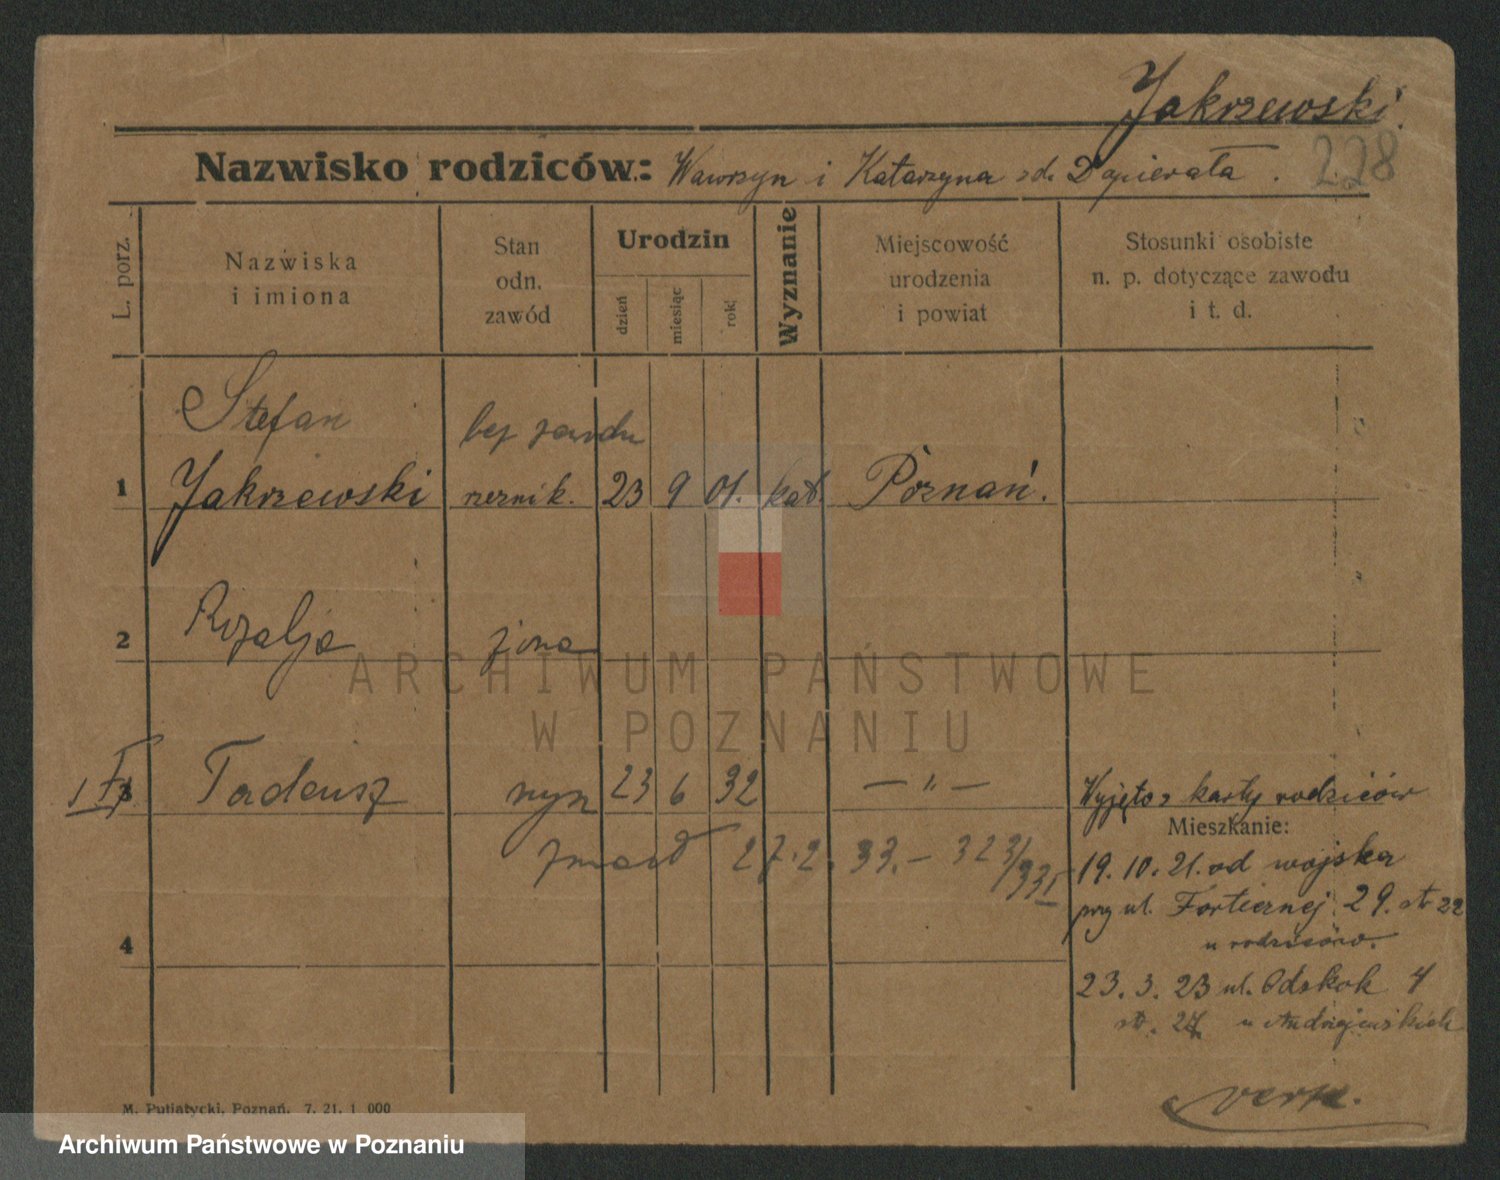 Jakrzewski.
228
Nazwisko rodziców: Wawrzyn i Katarzyna zd. Dopierała.
L. porz.
Nazwiska
i imiona
Stan
odn.
zawód
Urodzin
dzień
miesiąc
rok
Wyznanie
Miejscowość
urodzenia
i powiat
Stosunki osobiste
n. p. dotyczące zawodu
i t. d.
Stefan
bez zawodu
1 Jakrzewski rzeźnik. 23 9 01. kat. Poznań.
2 Rozalja żona
3 Tadeusz syn 23 6 32 — " —
Wyjęto z karty rodziców
Mieszkanie:
zmarł 27.2.33. – 323/33
19.10.21. od wojska
przy ul. Fortecznej 29. 22
u rodziców.
4
23.3.23 ul. Odskok 4
27 u
M. Putiatycki, Poznań. 7. 21. 1 000
ARCHIWUM PAŃSTWOWE
W POZNANIU
Archiwum Państwowe w Poznaniu